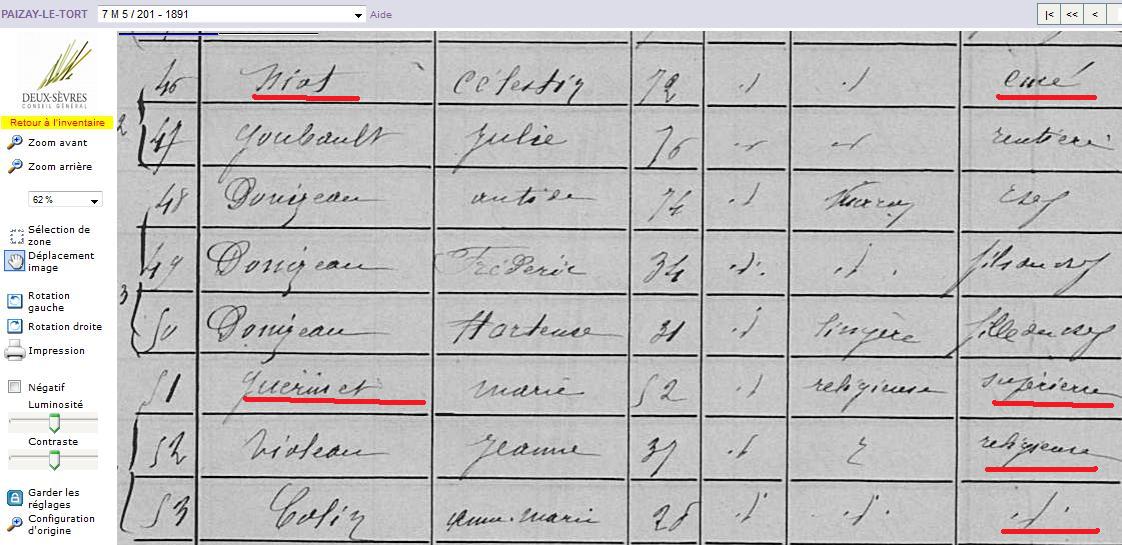 PAIZAY-LE-TORT 7 M 5 / 201 - 1891 Aide |< << <
DEUX-SÈVRES
CONSEIL GÉNÉRAL
Retour à l'inventaire
Zoom avant
Zoom arrière
62 %
Sélection de
zone
Déplacement
image
Rotation
gauche
Rotation droite
Impression
Négatif
Luminosité
Contraste
Garder les
réglages
Configuration
d'origine
46 Niot Célestin 72 d d
2 47 Goubault Julie 76 d d rentière
48 Donizeau 74 d chef
49 Donizeau Fréderic 34 d. d. fils du chef
3 50 Donizeau Hortense 31 d lingère fille du chef
51 Guérinet marie 52 d religieuse supérieure
52 Violeau Jeanne 37 d religieuse
53 Colin anne-marie 28 d d. d.